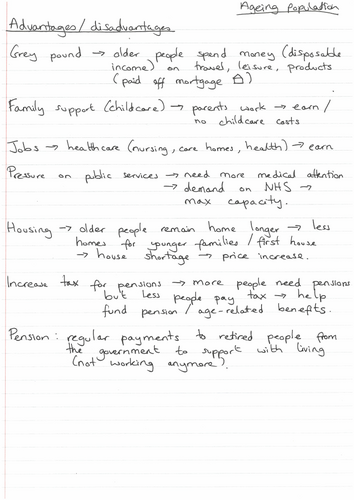 Ageing population
Advantages/disadvantages
Grey pound → older people spend money (disposable
income) on travel, leisure, products
(paid off mortgage)
Family support (childcare) → parents work → earn /
no childcare costs
Jobs → healthcare (nursing, care homes, health) → earn
Pressure on public services → need more medical attention
→ demand on NHS →
max capacity.
Housing → older people remain home longer → less
homes for younger families / first house
→ house shortage → price increase.
Increase tax for pensions → more people need pensions
but less people pay tax → help
fund pension / age-related benefits.
Pension: regular payments to retired people from
the government to support with living
(not working anymore).